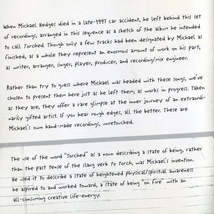 When Michael Hedges died in a late-1997 car accident, he left behind this set
of recordings, arranged in this sequence as a sketch of the album he intended
to call Torched. Though only a few tracks had been designated by Michael as
finished, as a whole they represent an enormous amount of work on his part,
as writer, arranger, singer, player, producer, and recording/mix engineer.
Rather than try to guess where Michael was headed with these songs, we've
chosen to present them here just as he left them, as works in progress. Taken
as they are, they offer a rare glimpse at the inner journey of an extraord-
inarily gifted artist. If you hear rough edges, all the better. These are
Michael's own hand-made recordings, unretouched.
The use of the word "torched" as a noun describing a state of being, rather
than the past tense of the slang verb to torch, was Michael's invention.
He used it to describe a state of heightened physical/spiritual awareness
he aspired to and worked toward, a state of being "on fire" with an
all-consuming creative life-energy.